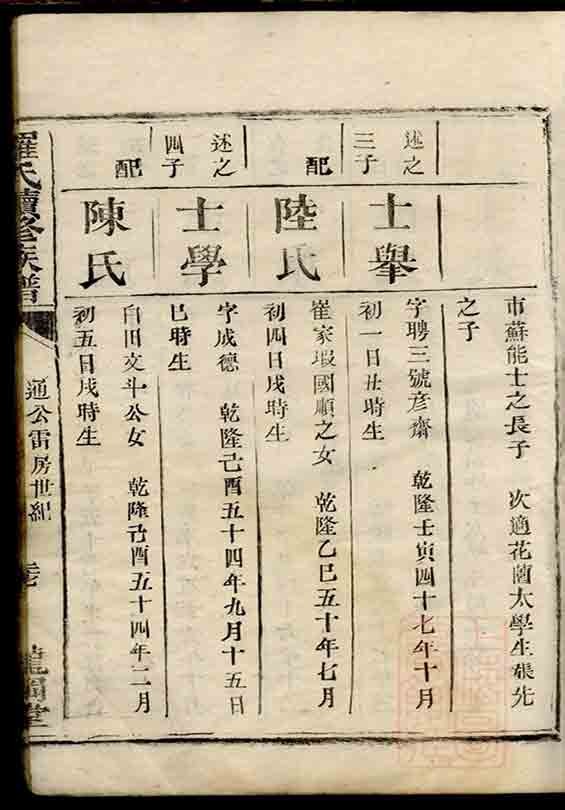 市蘇能士之長子　次適花園太學生張先
之子
述之
三子
士舉
字聘三號彥齋　乾隆壬寅四十七年十月
初一日丑時生
配
陸氏
崔家塅國順之女　乾隆乙巳五十年七月
初四日戌時生
述之
四子
士學
字成德　乾隆己酉五十四年九月十五日
巳時生
配
陳氏
白田文斗公女　乾隆己酉五十四年二月
初五日戌時生
羅氏續修族譜
通公雷房世紀